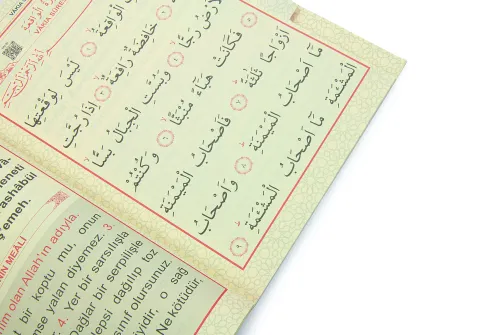 VÂKIA SÛRESİ
الْوَاقِعَةُ
لَيْسَ لِوَقْعَتِهَا
خَافِضَةٌ رَافِعَةٌ ٣ اِذَا رُجَّتِ
الْاَرْضُ رَجًّا ٤ وَبُسَّتِ الْجِبَالُ بَسًّا
فَكَانَتْ هَبَاءً مُنْبَثًّا ٦ وَكُنْتُمْ
اَزْوَاجًا ثَلٰثَةً ٧ فَاَصْحَابُ الْمَيْمَنَةِ
مَٓا اَصْحَابُ الْمَيْمَنَةِ ٨ وَاَصْحَابُ
الْمَشْـَٔمَةِ مَٓا اَصْحَابُ الْمَشْـَٔمَةِ ٩
ashâbül
MEÂLİ
olan Allah'ın adıyla.
bir koptu mu, onun
yalan diyemez. 3.
4. Yer bir sarsılışla
bir serpilişle
dağılıp toz
sınıf olursunuz.
o sağ
Ne kötüdür,